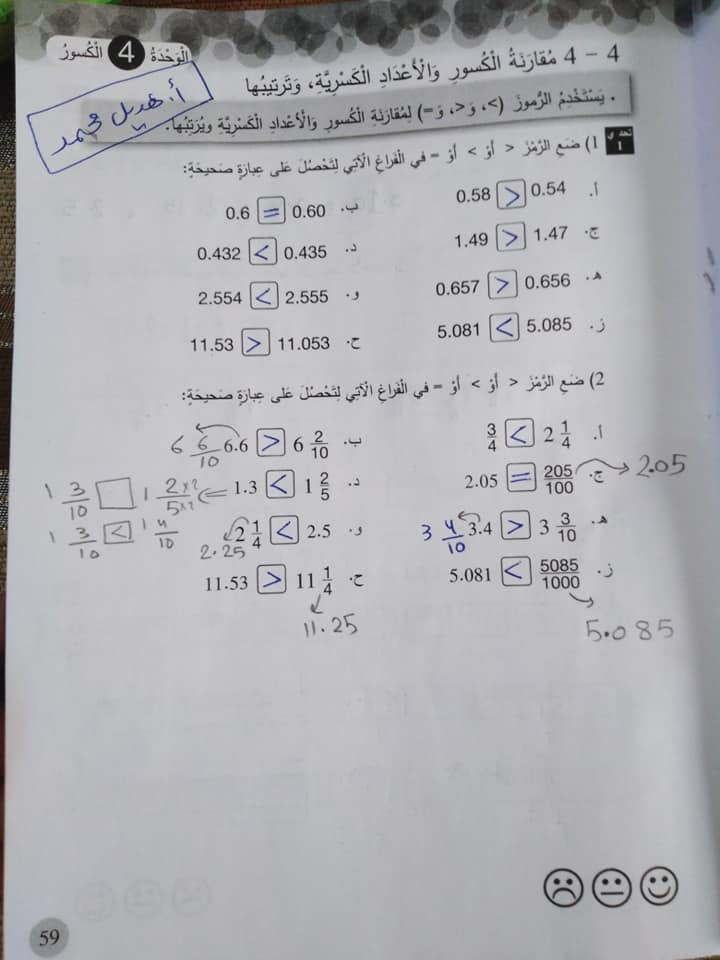 الْوَحْدَةُ 4 الْكُسورُ
4 – 4 مُقارَنَةُ الْكُسورِ وَالْأَعْدادِ الْكَسْرِيَّةِ، وَتَرتيبُها
أ. هديل محمد
. يَسْتَخْدِمُ الرُّموزَ (>، وَ <، وَ =) لِمُقارَنَةِ الْكُسورِ وَالْأَعْدادِ الْكَسْرِيَّةِ وَيُرَتِّبُها.
تحدي 1
1) ضَعِ الرَّمْزَ < أَوْ > أَوْ = في الْفَراغِ الْآتي لِتَحْصُلَ عَلى عِبارَةٍ صَحيحَةٍ:
أ. 0.58 > 0.54
ب. 0.6 = 0.60
ج. 1.49 > 1.47
د. 0.432 < 0.435
هـ. 0.657 > 0.656
و. 2.554 < 2.555
ز. 5.081 < 5.085
ح. 11.53 > 11.053
2) ضَعِ الرَّمْزَ < أَوْ > أَوْ = في الْفَراغِ الْآتي لِتَحْصُلَ عَلى عِبارَةٍ صَحيحَةٍ:
أ. 3/4 < 2 1/4
ب. 6.6 > 6 2/10
6 6/10
ج. 2.05 = 205/100
2.05
د. 1.3 < 1 2/5
1 3/10 □ 1 2×2/5×2
1 3/10 < 1 4/10
هـ. 3.4 > 3 3/10
3 4/10
و. 2 1/4 < 2.5
2.25
ز. 5.081 < 5085/1000
5.085
ح. 11.53 > 11 1/4
11.25
59